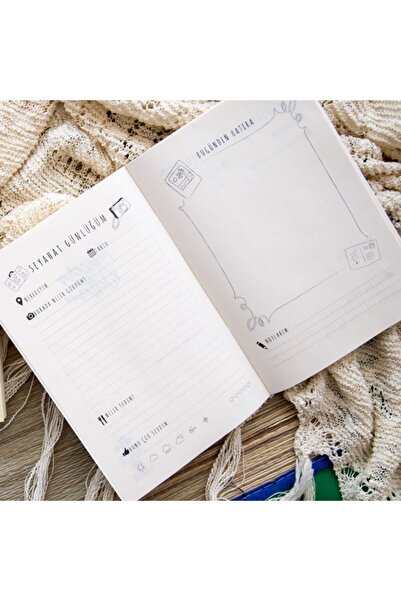 SEYAHAT GÜNLÜĞÜM
NEREDEYİM
TARİH
BURADA NELER GÖRDÜM?
NELER YEDİM?
BUNU ÇOK SEVDİM!
BUGÜNDEN HATIRA
NOTLARIM: